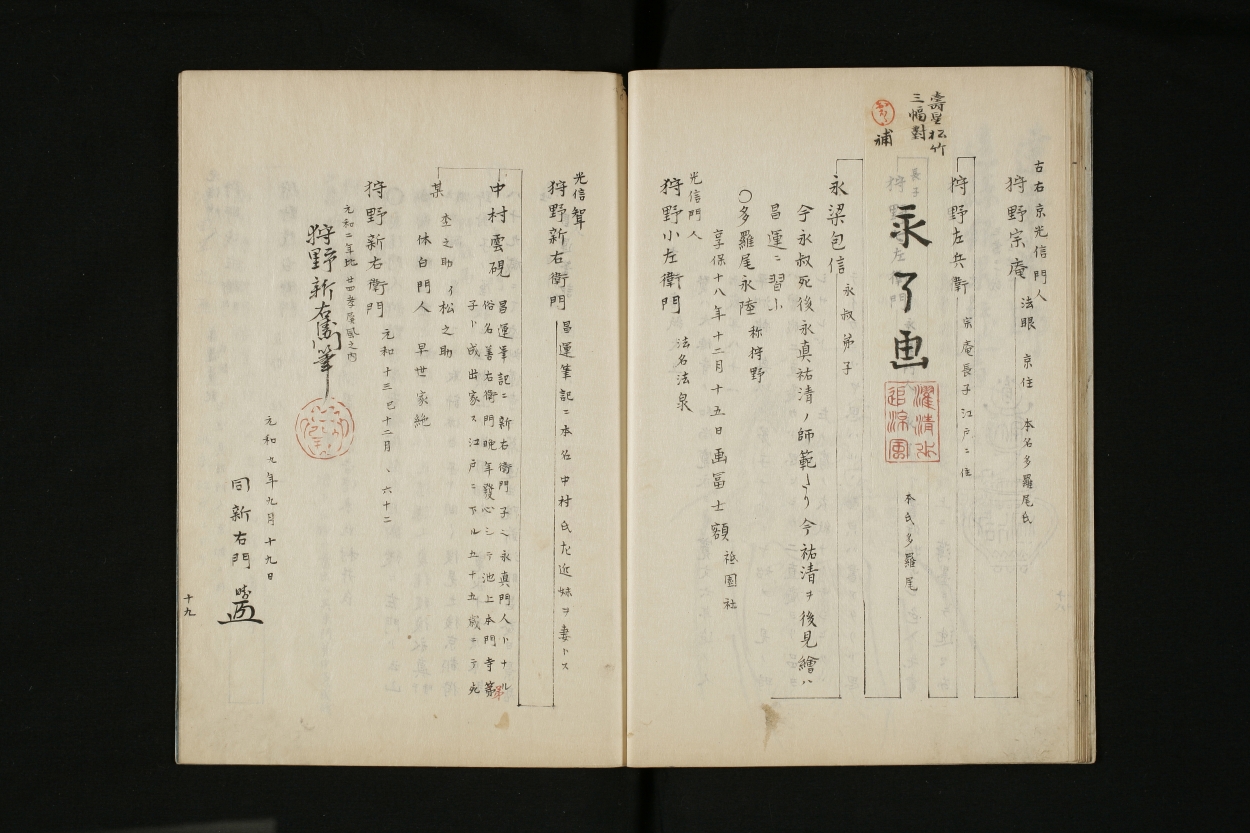 古右京光信門人
狩野宗庵
法眼 京住 本名多羅尾氏
狩野左兵衛
宗庵長子江戸ニ住
壽星松竹
三幅對
補
永了画
濯清水
追涼風
本氏多羅尾
永梁包信
永叔弟子
今永叔死後永真祐清ノ師範ナリ今祐清ヲ後見繪ハ
昌運ニ習フ
〇多羅尾永陸
称狩野
享保十八年十二月十五日画冨士額
祗園社
光信門人
狩野小左衛門
法名法泉
光信聟
狩野新右衛門
昌運筆記ニ本名中村氏左近妹ヲ妻トス
中村雲硯
昌運筆記ニ新右衛門子ニ永真門人トナル
俗名善右衛門晩年發心シテ池上本門寺第
子ト成出家ス江戸ニ下ル五十九歳ニテ死
某
杢之助 松之助
休白門人 早世家絶
狩野新右衛門
元和十三巳十二月、六十二
元和二年 廿四孝屋風之内
狩野新右衛門筆
元和九年九月十九日
同新右門
十九